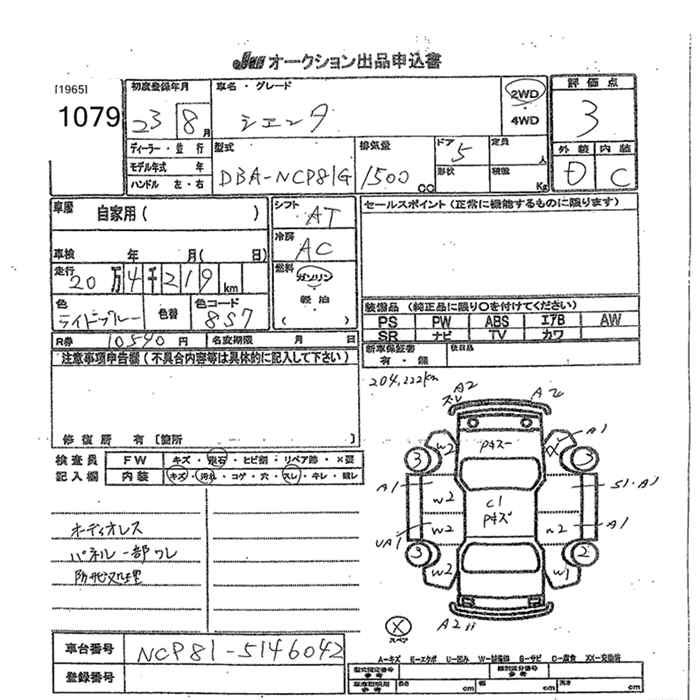 JU オークション出品申込書
[1965]
1079
初度登録年月
23 8月
車名・グレード
シエンタ
2WD
4WD
評価点
3
外装 内装
D C
ディーラー・並行
モデル年式 年
ハンドル 左・右
型式
DBA-NCP81G
排気量
1500 cc
ドア 5
形状
定員 人
積載 Kg
車歴 自家用( )
車検 年 月( 日)
走行 20万4千219km
色
ライトブルー
色替
色コード
8S7
シフト
AT
冷房
AC
燃料
ガソリン
軽油
( )
セールスポイント(正常に機能するものに限ります)
装備品(純正品に限り○を付けてください)
PS PW ABS エアB AW
SR ナビ TV カワ
R券 10540円 名変期限 月 日
新車保証書 有・無
後日品
注意事項申告欄(不具合内容等は具体的に記入して下さい)
修復歴 有〔箇所 〕
検査員記入欄
FW キズ・飛石・ヒビ割・リペア跡・X要
内装 キズ・汚れ・コゲ・穴・スレ・キレ・眠レ
オーディオレス
パネル一部ワレ
204,222km
A2
スレ
A2
W2
Pキズ
X
A1
3
3
A1
W2
C1
Pキズ
S1・A1
UA1
W2
W2
A1
3
2
W2
W1
X
スペア
A2
A-キズ E-エクボ U-凹み W-補修跡 S-サビ C-腐食 XX-交換済
車台番号 NCP81-5146042
登録番号
型式指定番号 参考
類別区分番号 参考
長さ cm 幅 cm 高さ cm